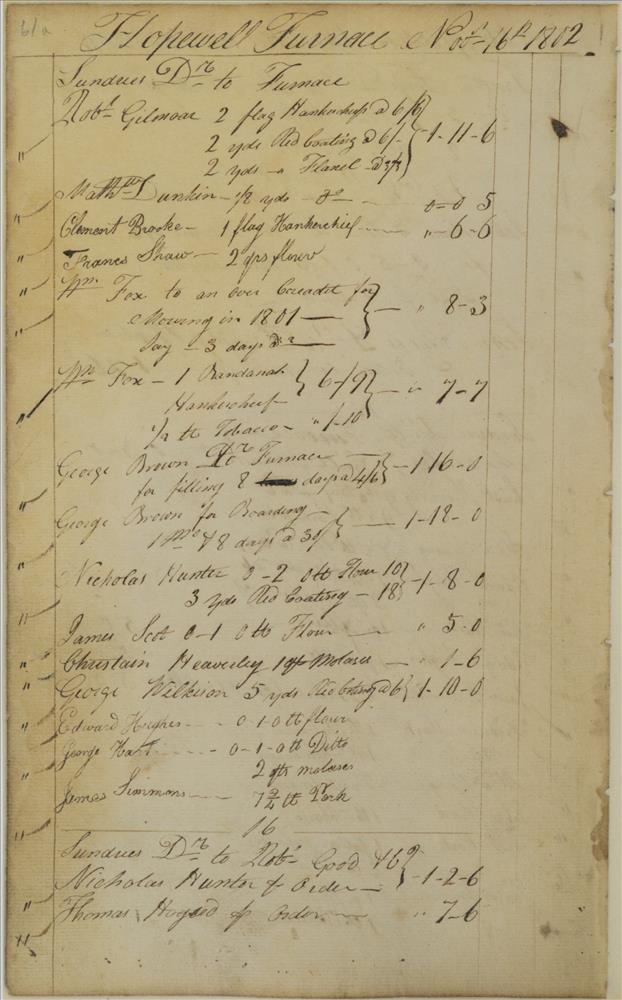 61a
Hopewell Furnace Nobr 16th 1802
Sundries Drs to Furnace
Robt Gilmoar 2 flag Hankercheifs @ 6/6
2 yds Red Coating @ 6/- 1-11-6
2 yds - Flanel @ 3/3
Matthw Dunkin - 1/8 yds - do - 0=0 5
Clement Brooke - 1 flag Hankerchief " - 6-6
Frances Shaw - 2 qrs flour
Wm Fox to an over Creadit for
Mowing in 1801 - " 8-3
Say - 3 days @
Wm Fox - 1 Bandanah 6-/9
Hankercheif - " 7-7
1/2 tt Tobacco - " /-10
George Brown Dr to Furnace
for filling 8 days @ 4/6 - 1 16-0
George Brown for Boarding -
1 Mo & 8 days @ 30/ - 1-18-0
Nicholas Hunter 0-2 0 tt Flour 10/ - 1-8-0
3 yds Red Coating - 18/
James Scot 0-1 0 tt Flour - " 5-0
Christain Heaverley 1 qt Molases - " 1-6
George Wilkison 5 yds Red Coting @ 6/ 1-10-0
Edward Hughes - - 0-1-0 tt flour
George Hart - - 0-1-0 tt Ditto
2 qts molases
James Simmons - 7 3/4 tt Pork
16
Sundries Drs to Robt Good
Nicholas Hunter & Order - 1-2-6
Thomas order - " 7-6